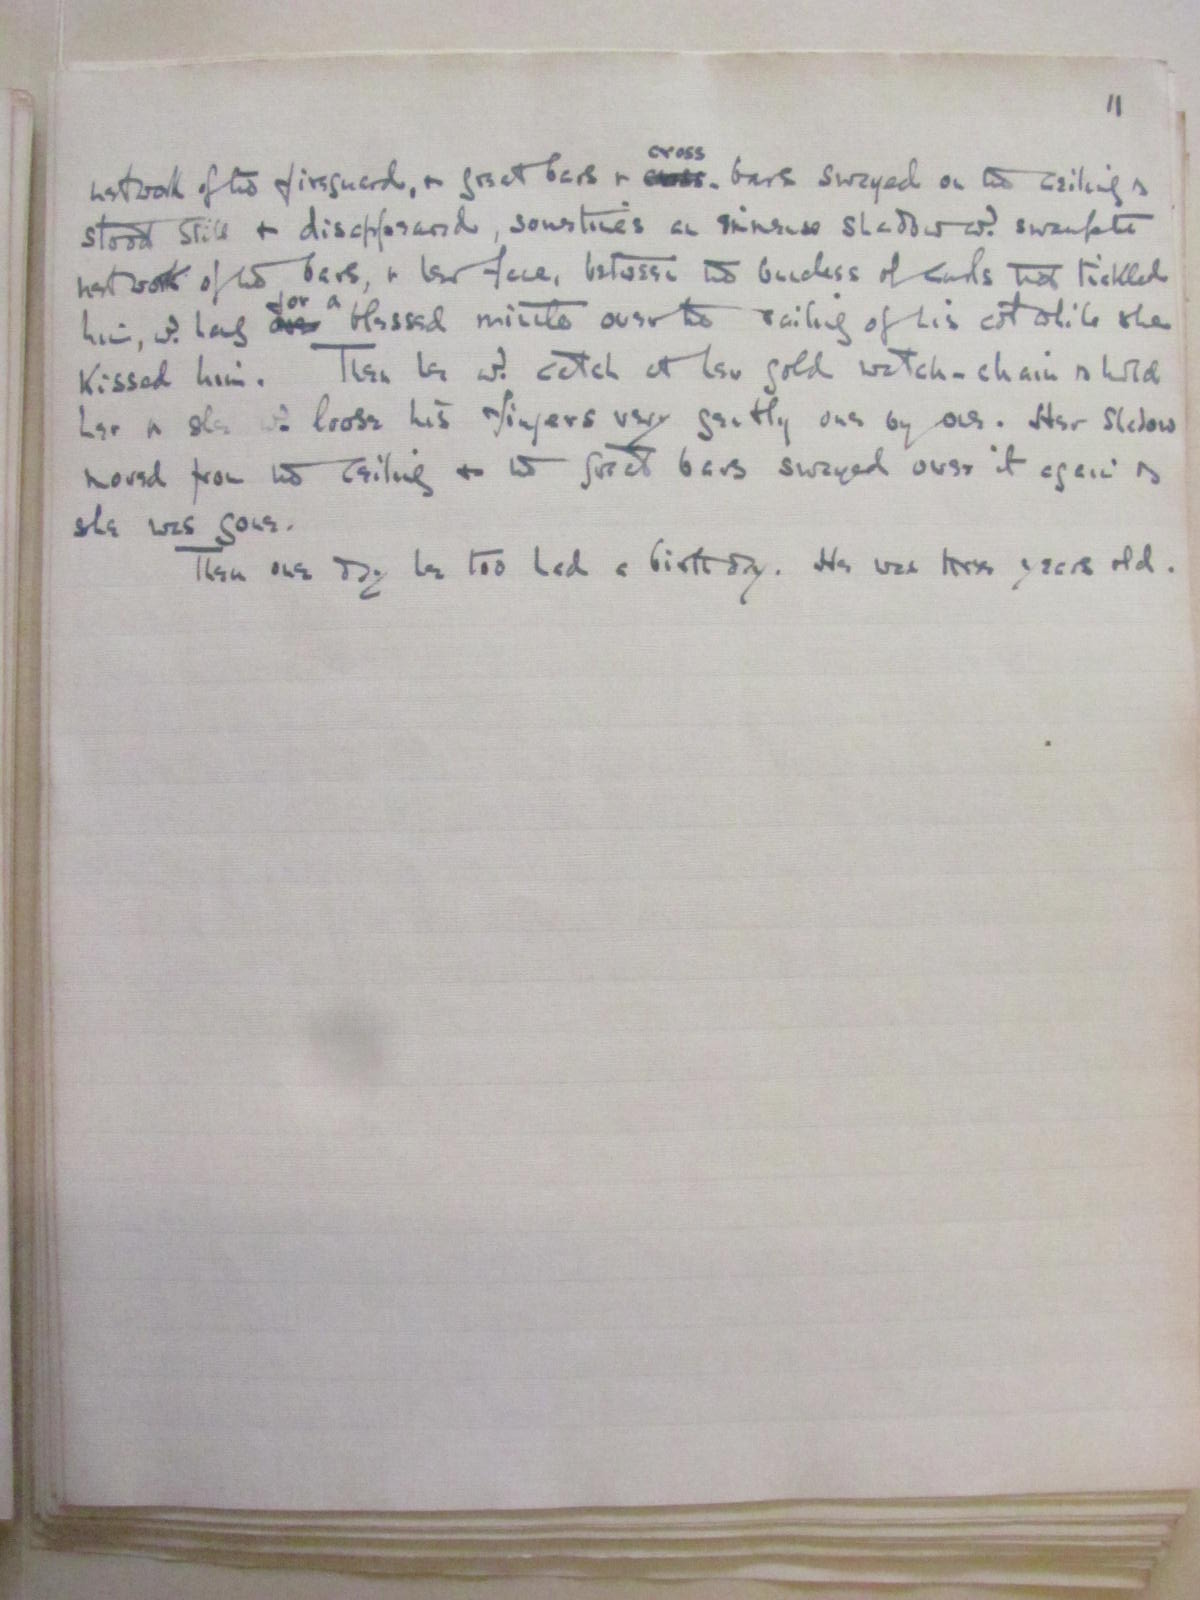 11
network of the fireguard, & great bars & cross cross-bars swayed on the ceiling &
stood still & disappeared, sometimes an immense shadow wd. swamp the
network of the bars, & her face, between the bunches of curls that tickled
him, wd. hang for a blessed minute over the railing of his cot while she
kissed him. Then he wd. catch at her gold watch-chain & hold
her & she wd. loose his fingers very gently one by one. Her shadow
moved from the ceiling & the great bars swayed over it again &
she was gone.
Then one day he too had a birthday. He was three years old.